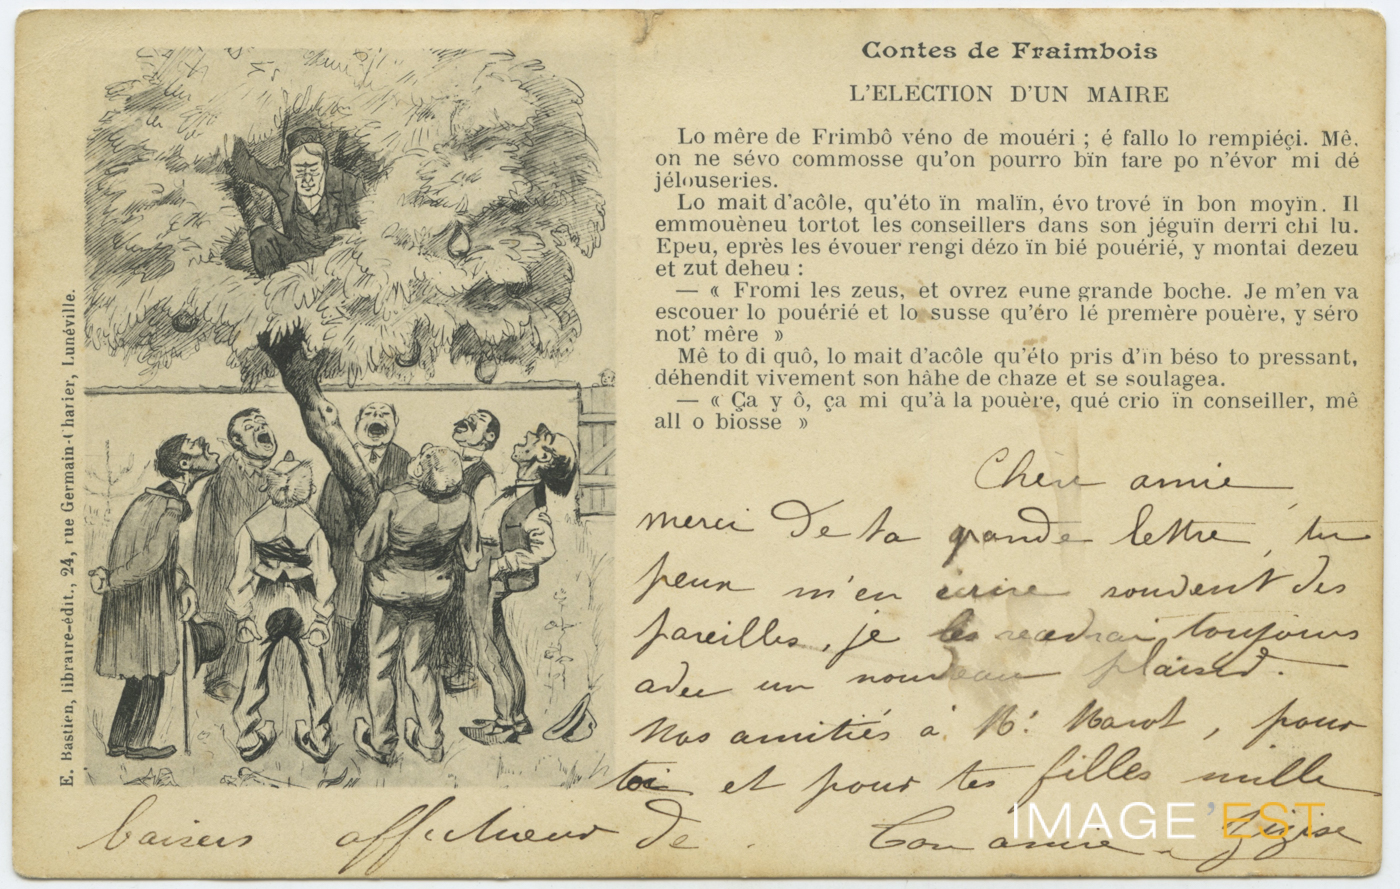 Contes de Fraimbois
L'ELECTION D'UN MAIRE
Lo mêre de Frimbô véno de mouéri ; é fallo lo rempiéçi. Mê.
on ne sévo commosse qu'on pourro bïn fare po n'évor mi dé
jélouseries.
Lo mait d'acôle, qu'éto ïn malïn, évo trové ïn bon moyïn. Il
emmouèneu tortot les conseillers dans son jéguïn derri chi lu.
Epeu, eprès les évouer rengi dézo ïn bié pouérié, y montai dezeu
et zut deheu :
— « Fromi les zeus, et ovrez eune grande boche. Je m'en va
escouer lo pouérié et lo susse qu'éro lé premère pouère, y séro
not' mêre »
Mê to di quô, lo mait d'acôle qu'éto pris d'ïn béso to pressant,
déhendit vivement son hâhe de chaze et se soulagea.
— « Ça y ô, ça mi qu'à la pouère, qué crio ïn conseiller, mê
all o biosse »
E. Bastien, libraire-édit., 24, rue Germain-Charier, Lunéville.
Chère amie
merci de ta grande lettre, tu
peux m'en écrire souvent des
pareilles, je les recevrai toujours
avec un nouveau plaisir.
Nos amitiés à Mr Marot, pour
toi et pour tes filles mille
baisers affectueux de
Ton amie
IMAGE'EST